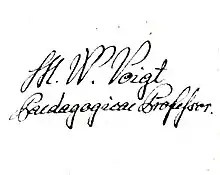 M. W. Voigt
Paedagogicae Professor.